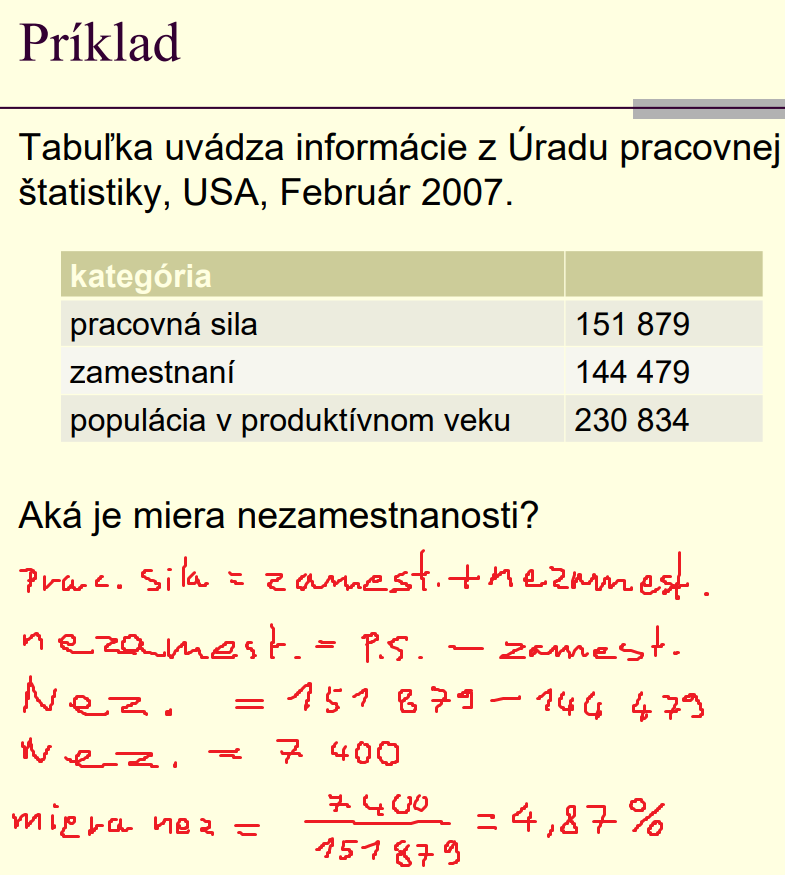 Príklad
Tabuľka uvádza informácie z Úradu pracovnej
štatistiky, USA, Február 2007.
kategória
pracovná sila 151 879
zamestnaní 144 479
populácia v produktívnom veku 230 834
Aká je miera nezamestnanosti?
Prac. sila = zamest. + nezamest.
nezamest. = P.S. - zamest.
Nez. = 151 879 - 144 479
Nez. = 7 400
miera nez = 7 400 / 151 879 = 4,87 %